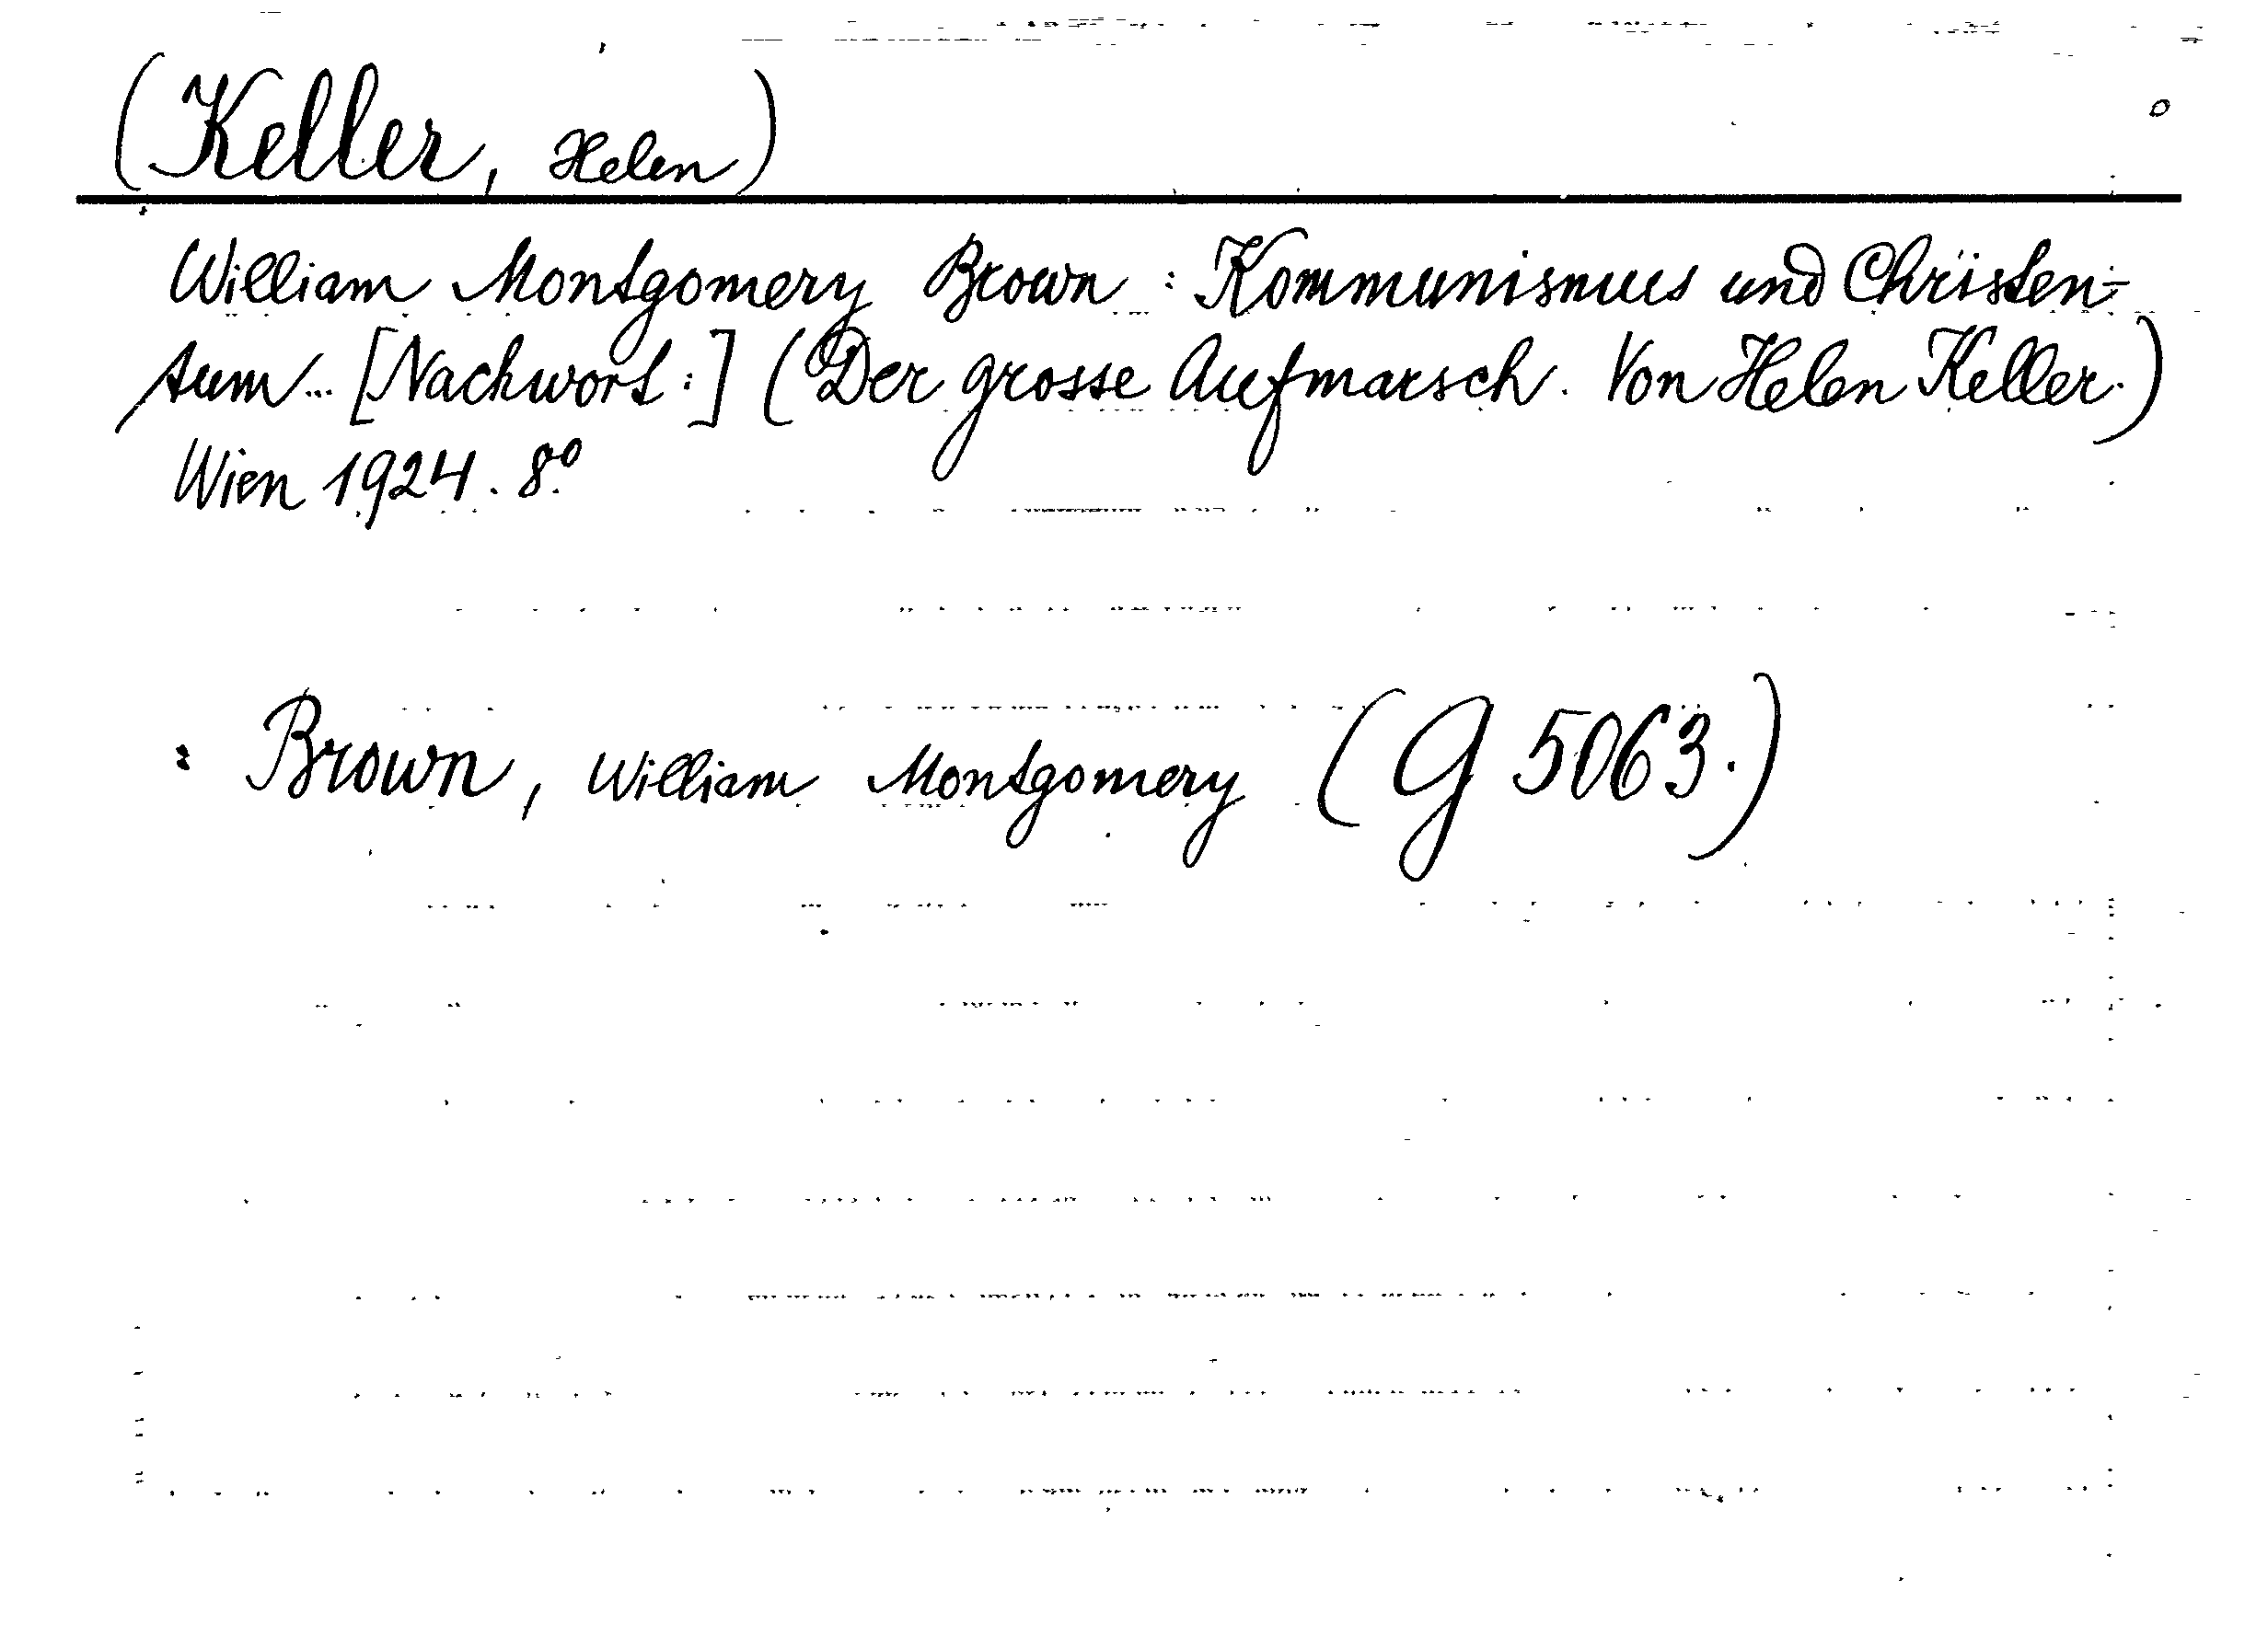 (Keller, Helen)
William Montgomery Brown : Kommunismus und Christen-
tum... [Nachwort:] (Der grosse Aufmarsch. Von Helen Keller.)
Wien 1924. 8º
: Brown, William Montgomery (G 5063.)